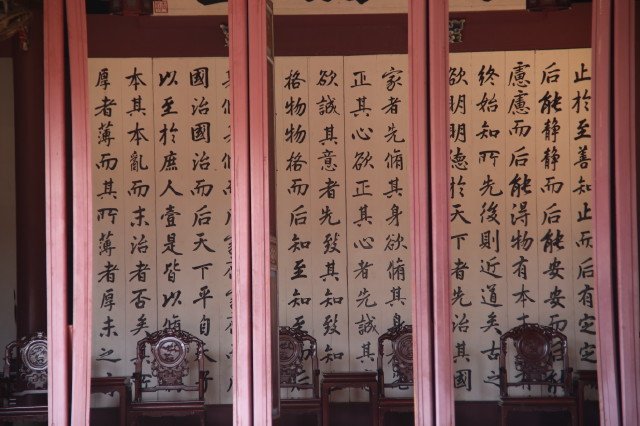 止於至善知止而后有定定
后能静静而后能安安而
慮慮而后能得物有本
終始知所先後則近道矣古之
欲明明德於天下者先治其國
家者先脩其身欲脩其身
正其心欲正其心者先誠
欲誠其意者先致其知致知
格物物格而后知至知至
國治國治而后天下平自天
以至於庶人壹是皆以脩
本其本亂而末治者否矣
厚者薄而其所薄者厚未之